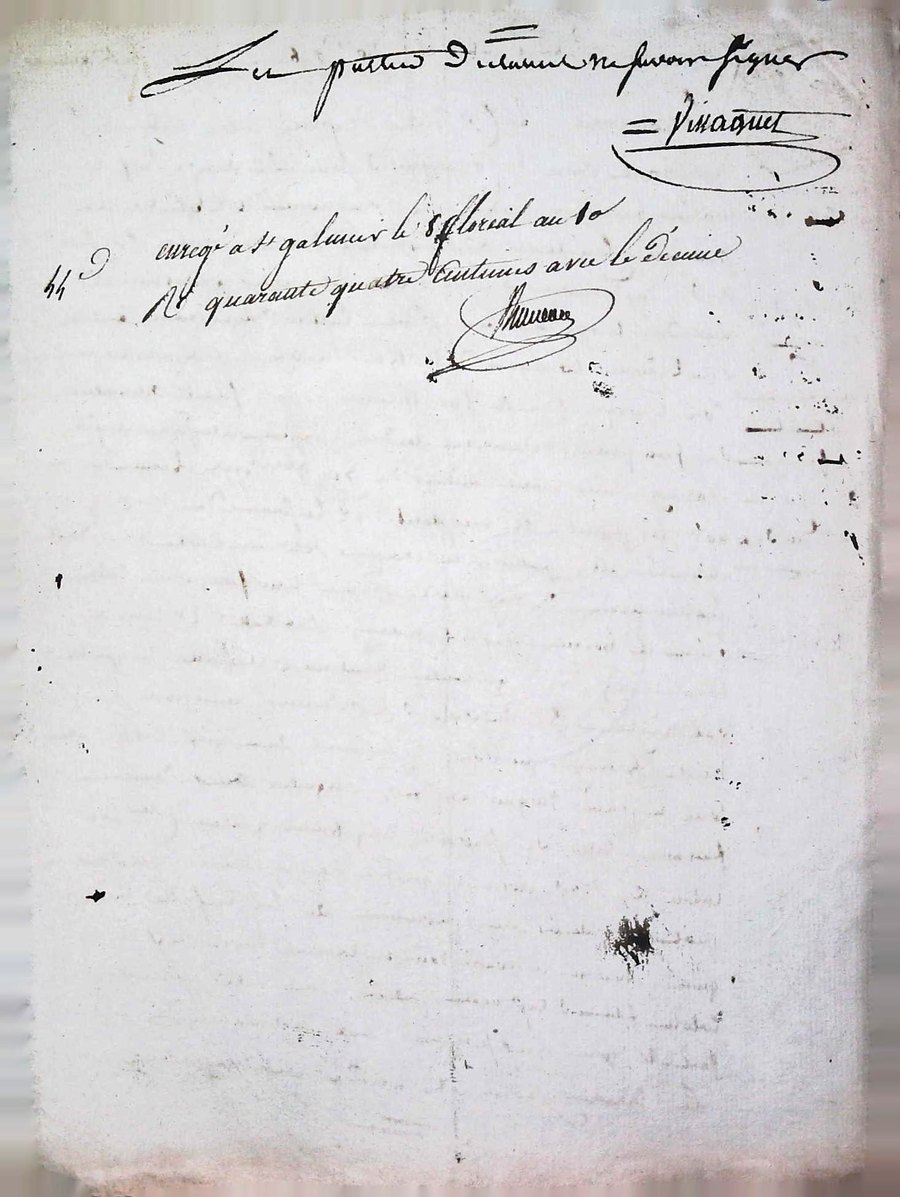 Les parties declarent ne savoir signer
= Vissaguet
enregé a St galmier le 8 floreal an 10
44 d
Rt quarante quatre Centimes avec le Décime